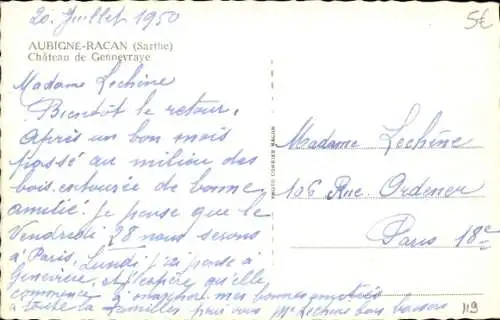 20 Juillet 1950
5€
AUBIGNÉ-RACAN (Sarthe)
Château de Gennevraye
Madame Lechêne
Bientôt le retour.
Après un bon mois
passé au milieu des
bois entourée de bonne
amitié. Je pense que le
Vendredi 28 nous serons
à Paris. Lundi j'ai pensé à
Geneviève. J'espère qu'elle
commence à
mes bonnes amitiés
à toute la familles pour vous Me Lechêne bons baisers
PHOTO COMBIER MACON
Madame Lechêne
106 Rue Ordener
Paris 18e
119